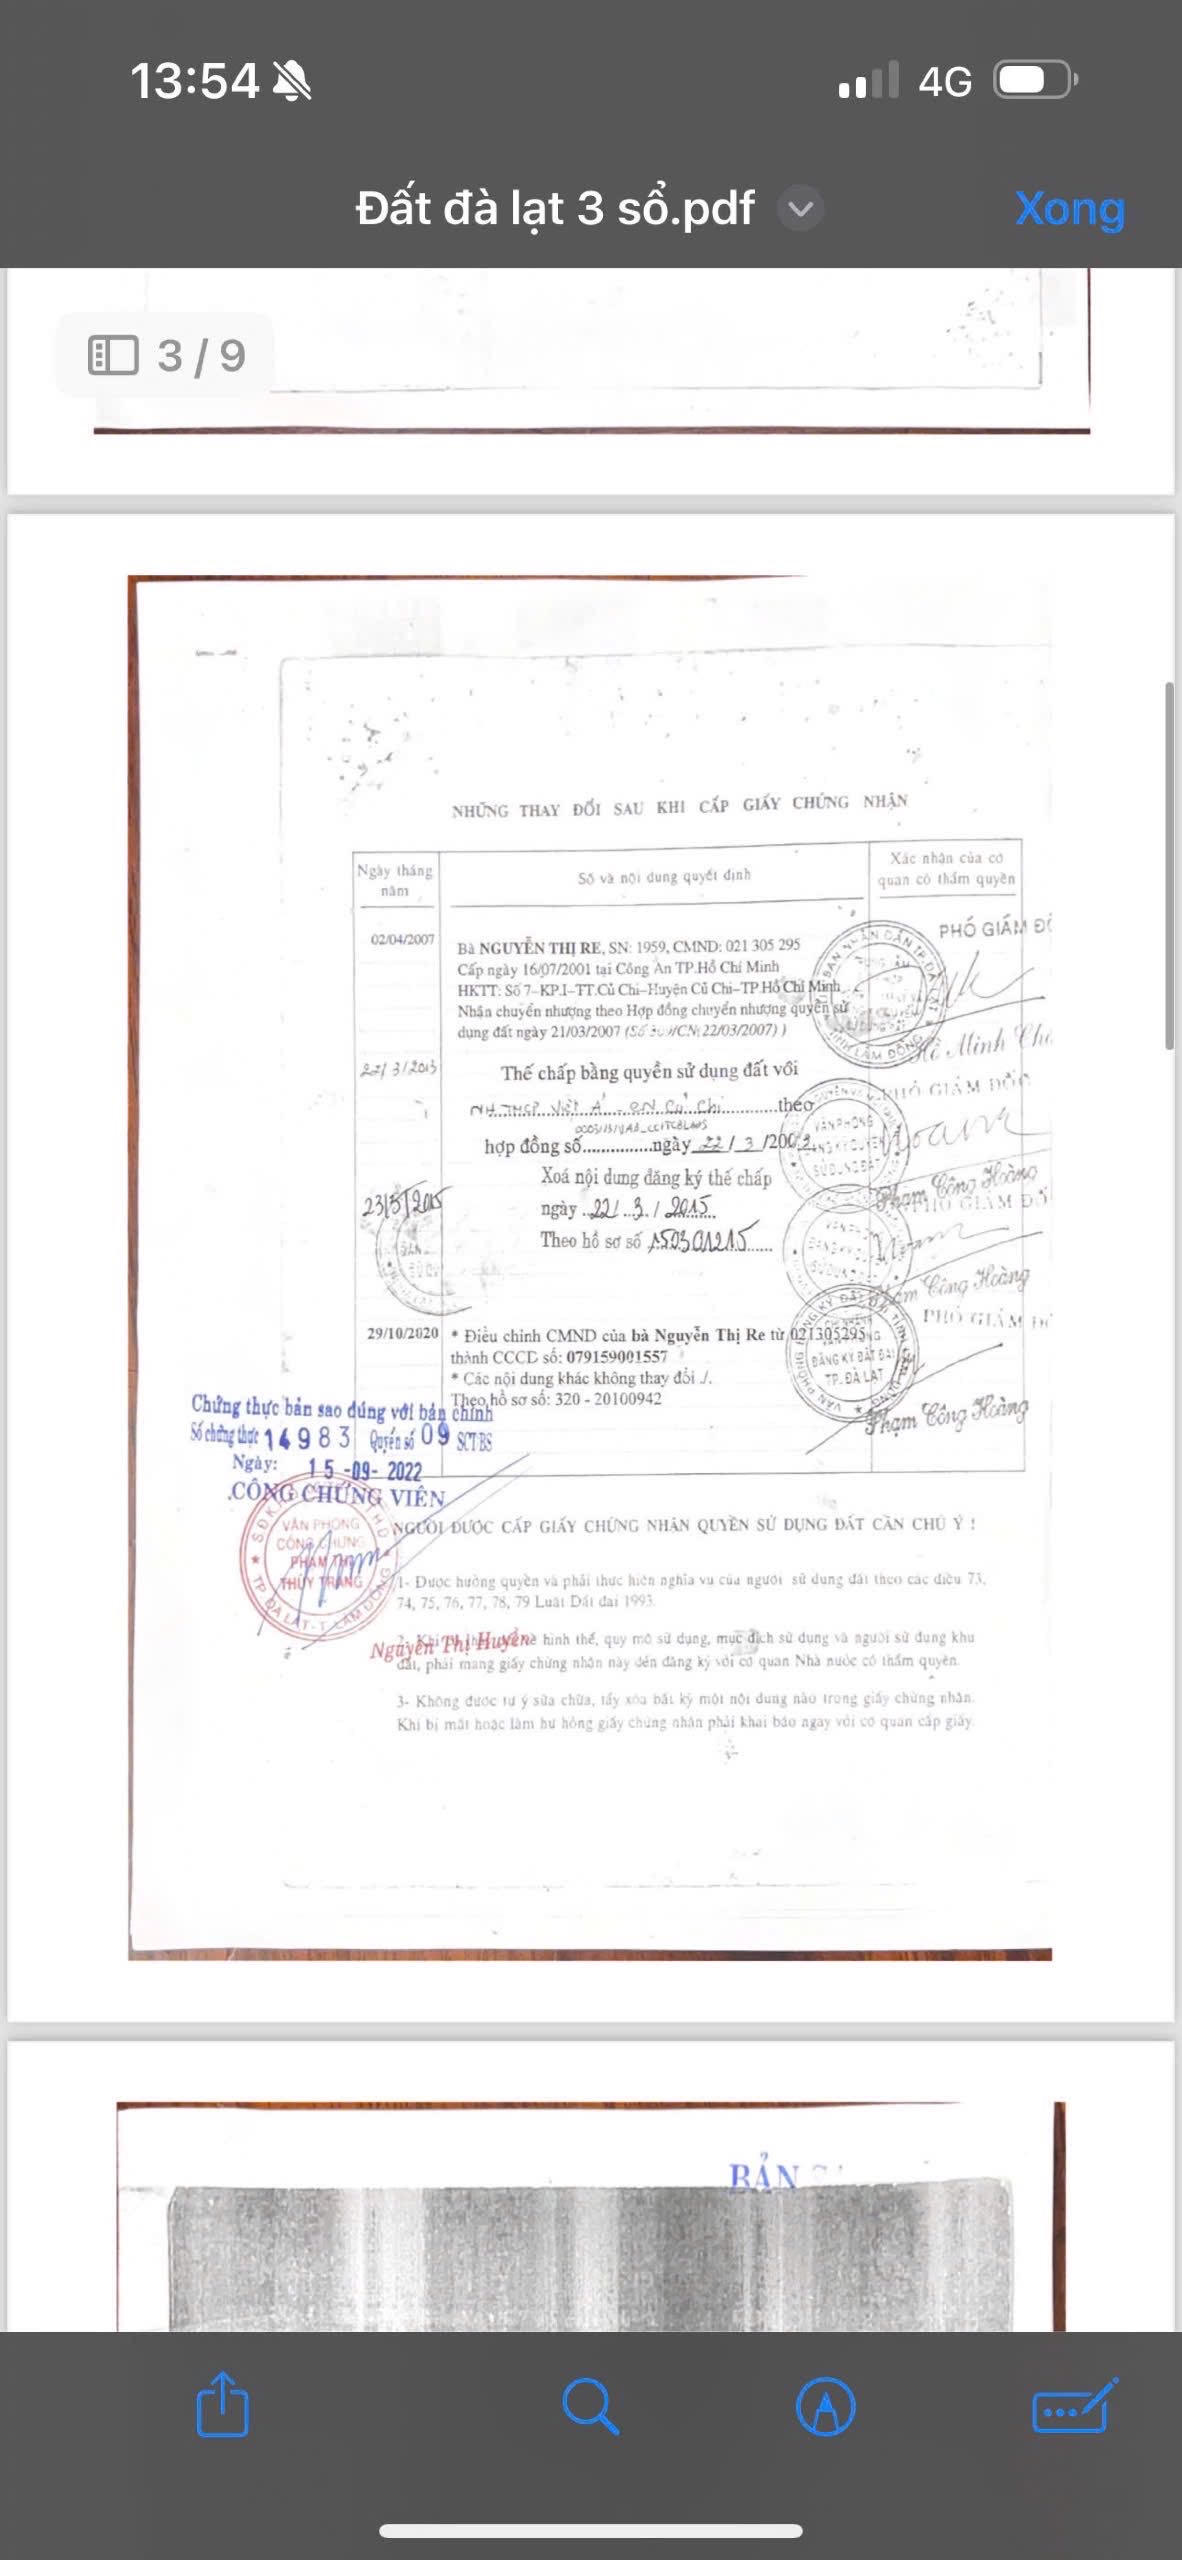 13:54
4G
Đất đà lạt 3 sổ.pdf
Xong
3 / 9
NHỮNG THAY ĐỔI SAU KHI CẤP GIẤY CHỨNG NHẬN
Ngày tháng năm
Số và nội dung quyết định
Xác nhận của cơ quan có thẩm quyền
02/04/2007
Bà NGUYỄN THỊ RE, SN: 1959, CMND: 021 305 295
Cấp ngày 16/07/2001 tại Công An TP.Hồ Chí Minh
HKTT: Số 7-KP.I-TT.Củ Chi-Huyện Củ Chi-TP Hồ Chí Minh
Nhận chuyển nhượng theo Hợp đồng chuyển nhượng quyền sử
dụng đất ngày 21/03/2007 (Số /CN 22/03/2007) )
PHÓ GIÁM ĐỐ
Hồ Minh
22/3/2013
Thế chấp bằng quyền sử dụng đất với
NH.TMCP Việt Á - CN Củ Chi theo
hợp đồng số...............ngày 22 / 3 /200
PHÓ GIÁM ĐỐC
VĂN PHÒNG
ĐĂNG KÝ QUYỀN
SỬ DỤNG ĐẤT
Phạm Công Hoàng
Xoá nội dung đăng ký thế chấp
23/3/2015
ngày 22/ 3 / 2015
Theo hồ sơ số 150301215
PHÓ GIÁM ĐỐ
Phạm Công Hoàng
29/10/2020
* Điều chỉnh CMND của bà Nguyễn Thị Re từ 021305295
thành CCCD số: 079159001557
* Các nội dung khác không thay đổi ./.
Theo hồ sơ số: 320 - 20100942
PHÓ GIÁM ĐỐ
ĐĂNG KÝ ĐẤT ĐAI
TP. ĐÀ LẠT
Phạm Công Hoàng
Chứng thực bản sao đúng với bản chính
Số chứng thực 14983 Quyển số 09 SCT/BS
Ngày: 15 -09- 2022
CÔNG CHỨNG VIÊN
VĂN PHÒNG
CÔNG CHỨNG
PHẠM THỊ
THÙY TRANG
TP ĐÀ LẠT - T. LÂM ĐỒNG
Nguyễn Thị Huyền
NGƯỜI ĐƯỢC CẤP GIẤY CHỨNG NHẬN QUYỀN SỬ DỤNG ĐẤT CẦN CHÚ Ý !
1- Được hưởng quyền và phải thực hiện nghĩa vụ của người sử dụng đất theo các điều 73,
74, 75, 76, 77, 78, 79 Luật Đất đai 1993.
2- Khi hình thể, quy mô sử dụng, mục đích sử dụng và người sử dụng khu
đất, phải mang giấy chứng nhận này đến đăng ký với cơ quan Nhà nước có thẩm quyền.
3- Không được tự ý sửa chữa, tẩy xóa bất kỳ một nội dung nào trong giấy chứng nhận.
Khi bị mất hoặc làm hư hỏng giấy chứng nhận phải khai báo ngay với cơ quan cấp giấy.
BẢN